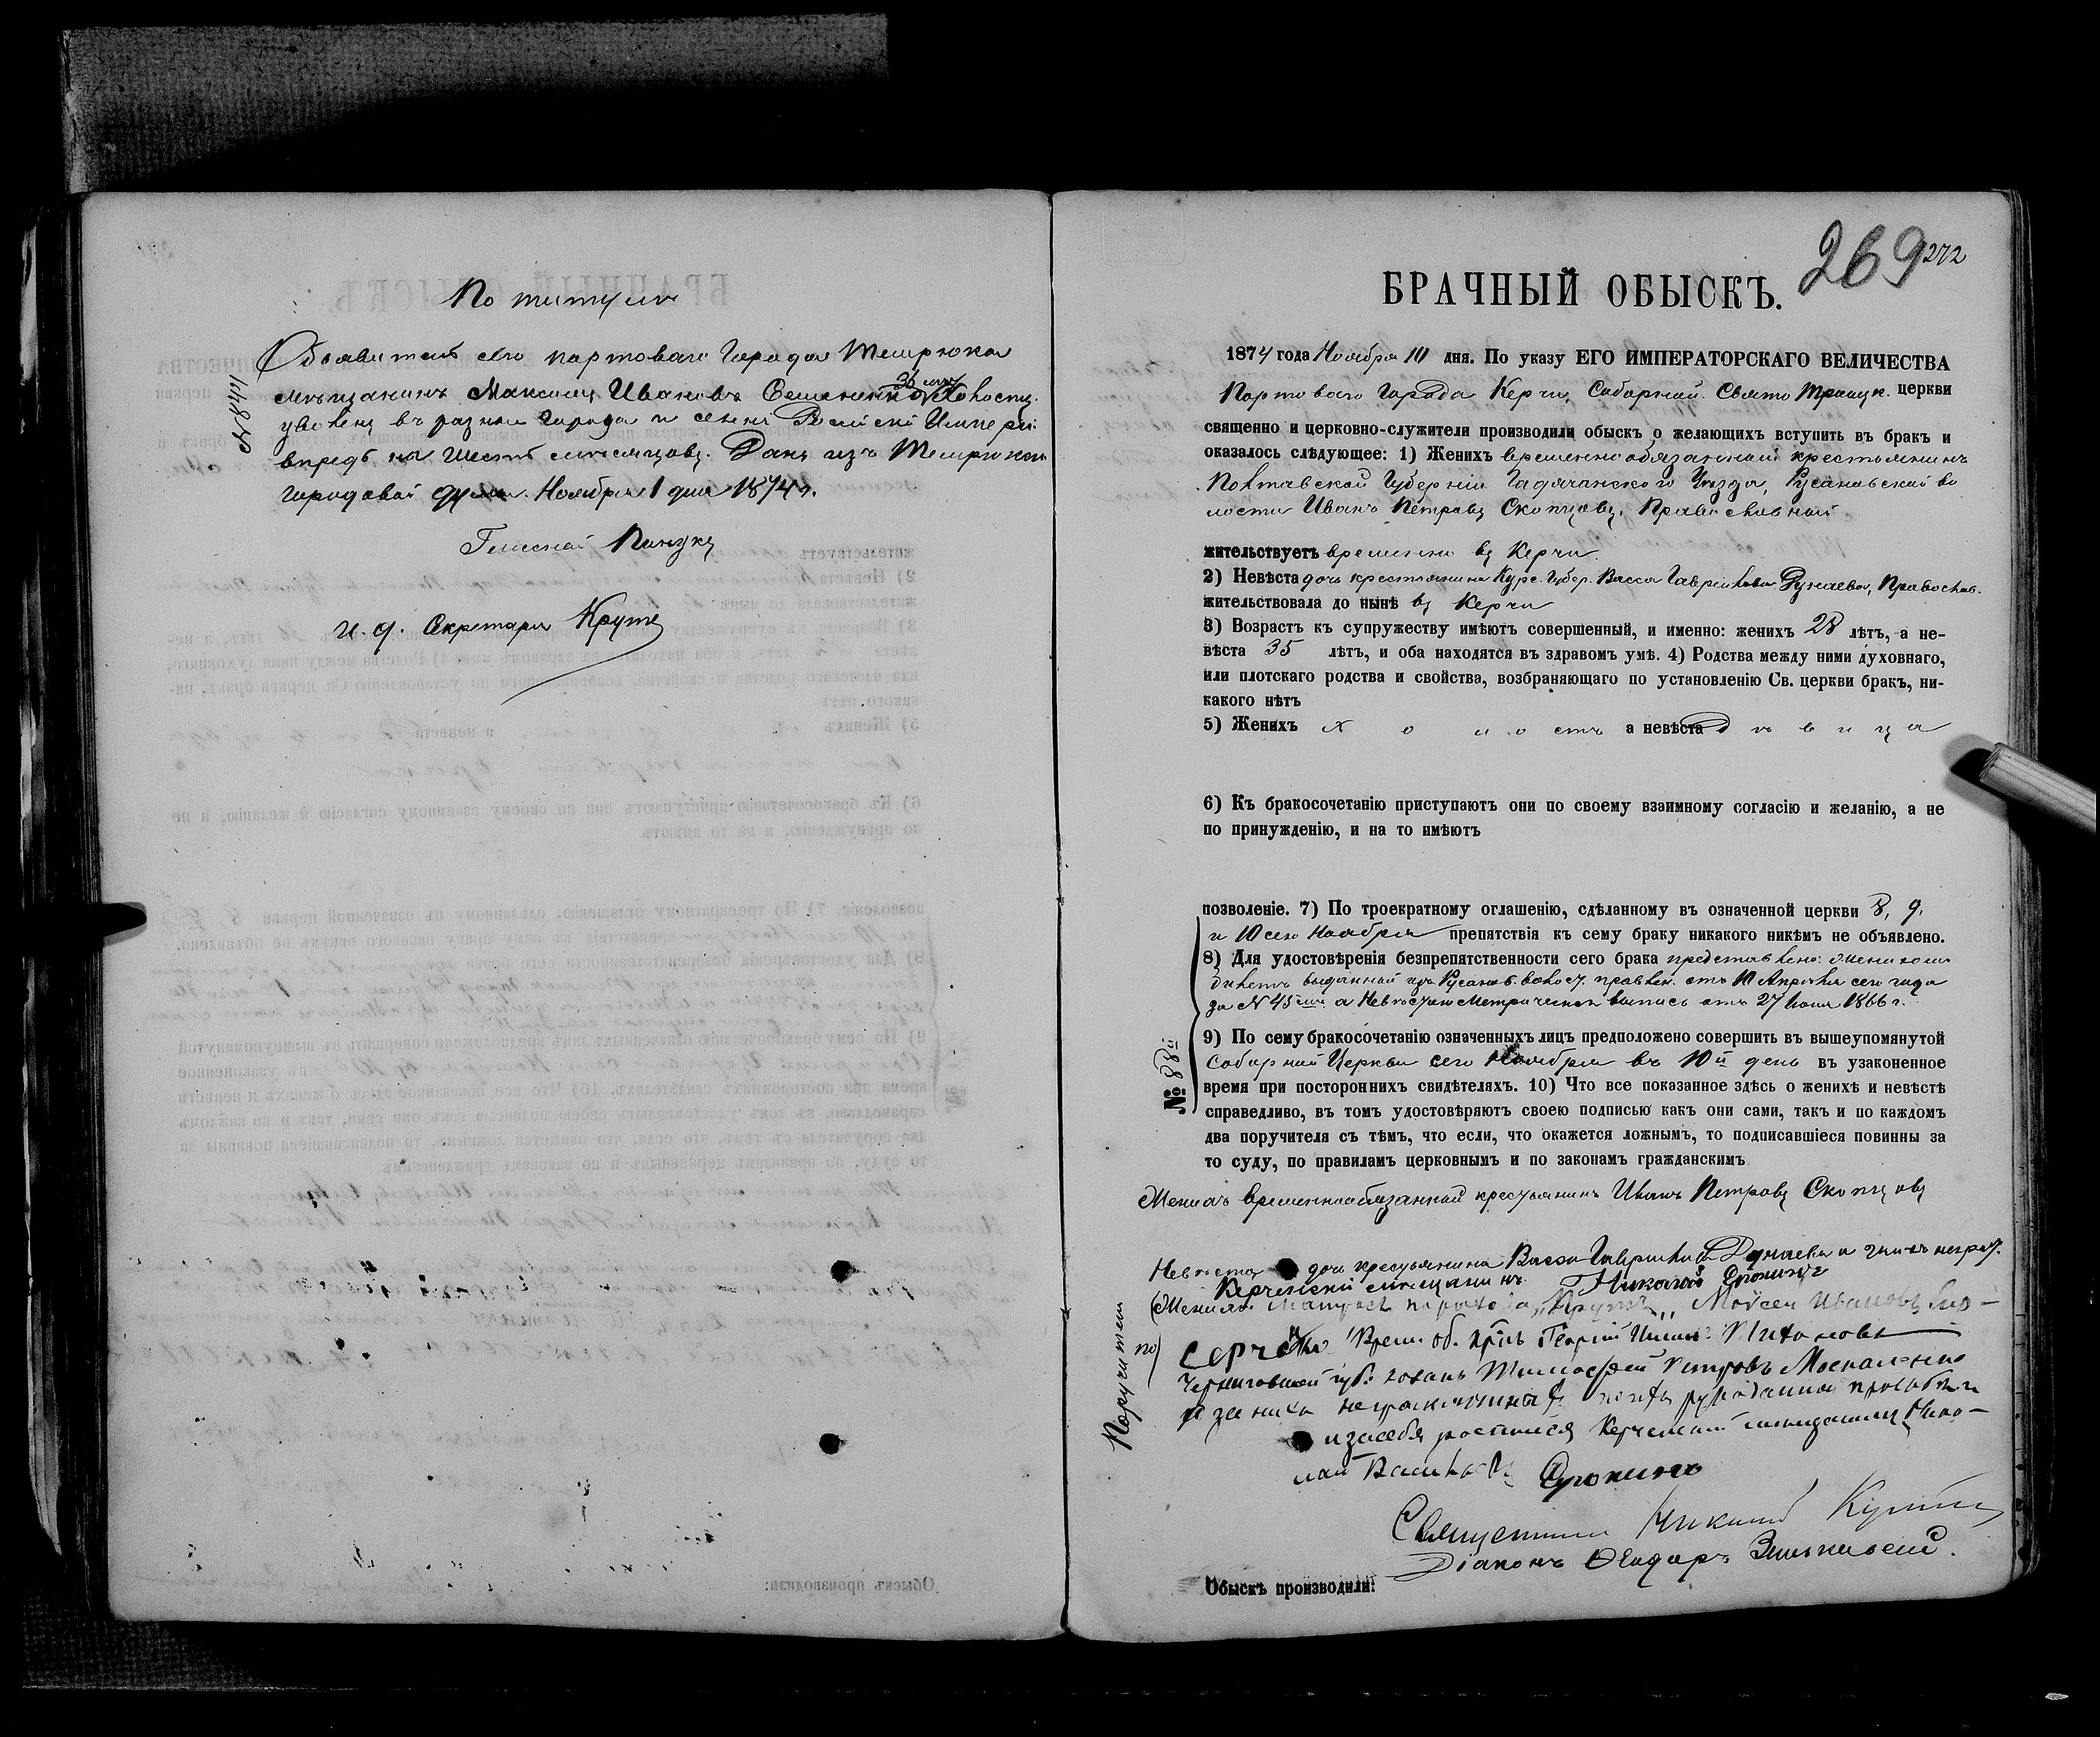 По титулѣ
№ 8441
Объявитель сего портоваго города Темрюка
мѣщанинъ Максимъ Ивановъ 36 лѣтъ Холостъ
уволенъ въ разные города и селенія Россійской Имперіи
впредь на шесть мѣсяцовъ. Данъ изъ Темрюкской
городовой думы. Ноября 1 дня 1874 г.
Гласный
И. д. Секретаря
269 272
БРАЧНЫЙ ОБЫСКЪ.
1874 года Ноября 10 дня. По указу ЕГО ИМПЕРАТОРСКАГО ВЕЛИЧЕСТВА
Портоваго города Керчи, Соборной Свято Троицк. церкви
священно и церковно-служители производили обыскъ о желающихъ вступить въ бракъ и
оказалось слѣдующее: 1) Женихъ временно обязанный крестьянинъ
Полтавской Губерніи Гадячанскаго Уѣзда, Русановской во
лости Иванъ Петровъ Скопцовъ, Православный
жительствуетъ временно въ Керчи.
2) Невѣста дочь крестьянина Курс. Губер. Васса Гаврилова Дунаева, Православ.
жительствовала до нынѣ въ Керчи
3) Возрастъ къ супружеству имѣютъ совершенный, и именно: женихъ 28 лѣтъ, а не-
вѣста 35 лѣтъ, и оба находятся въ здравомъ умѣ. 4) Родства между ними духовнаго,
или плотскаго родства и свойства, возбраняющаго по установленію Св. церкви бракъ, ни-
какого нѣтъ
5) Женихъ холостъ а невѣста Дѣвица
6) Къ бракосочетанію приступаютъ они по своему взаимному согласію и желанію, а не
по принужденію, и на то имѣютъ
позволеніе. 7) По троекратному оглашенію, сдѣланному въ означенной церкви 8, 9,
и 10 сего Ноября препятствія къ сему браку никакого никѣмъ не объявлено.
8) Для удостовѣренія безпрепятственности сего брака представлено: женихомъ
билетъ выданный изъ Русанов. волост. правлен. отъ 10 Апрѣля сего года
за № 45 а Невѣстою Метрическая выпись отъ 27 Іюня 1866 г.
9) По сему бракосочетанію означенныхъ лицъ предположено совершить въ вышеупомянутой
Соборной Церкви сего Ноября въ 10й день въ узаконенное
время при постороннихъ свидѣтеляхъ. 10) Что все показанное здѣсь о женихѣ и невѣстѣ
справедливо, въ томъ удостовѣряютъ своею подписью какъ они сами, такъ и по каждомъ
два поручителя съ тѣмъ, что если, что окажется ложнымъ, то подписавшіеся повинны за
то суду, по правиламъ церковнымъ и по законамъ гражданскимъ
№ 88й
Женихъ временнообязанный крестьянинъ Иванъ Петровъ Скопцовъ
Невѣста дочь крестьянина Васса Гаврилова Дунаева а за нихъ неграм.
Керченскій мѣщанинъ Николай
Поручители по
Женихѣ: Матросъ парохода Моисей Ивановъ
Врем. об. Георгій
Черниговской губ. козакъ Тимофей Петровъ Москаленко
а за нихъ неграмотныхъ по ихъ рукоданной прозьбѣ и
и за себя росписался Керченскій мѣщанинъ Нико-
лай Васильевъ
Священникъ
Діаконъ Ѳеодоръ
Обыскъ производили: